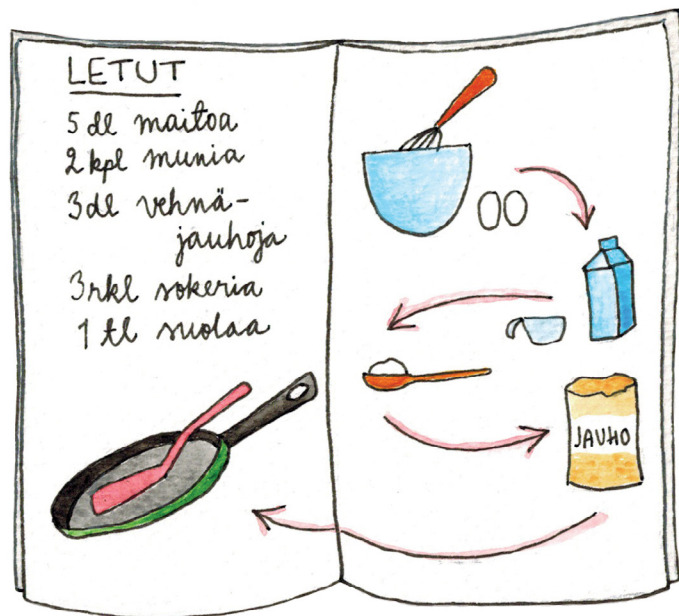 LETUT
5 dl maitoa
2 kpl munia
3 dl vehnä-
jauhoja
3 rkl sokeria
1 tl suolaa
JAUHO